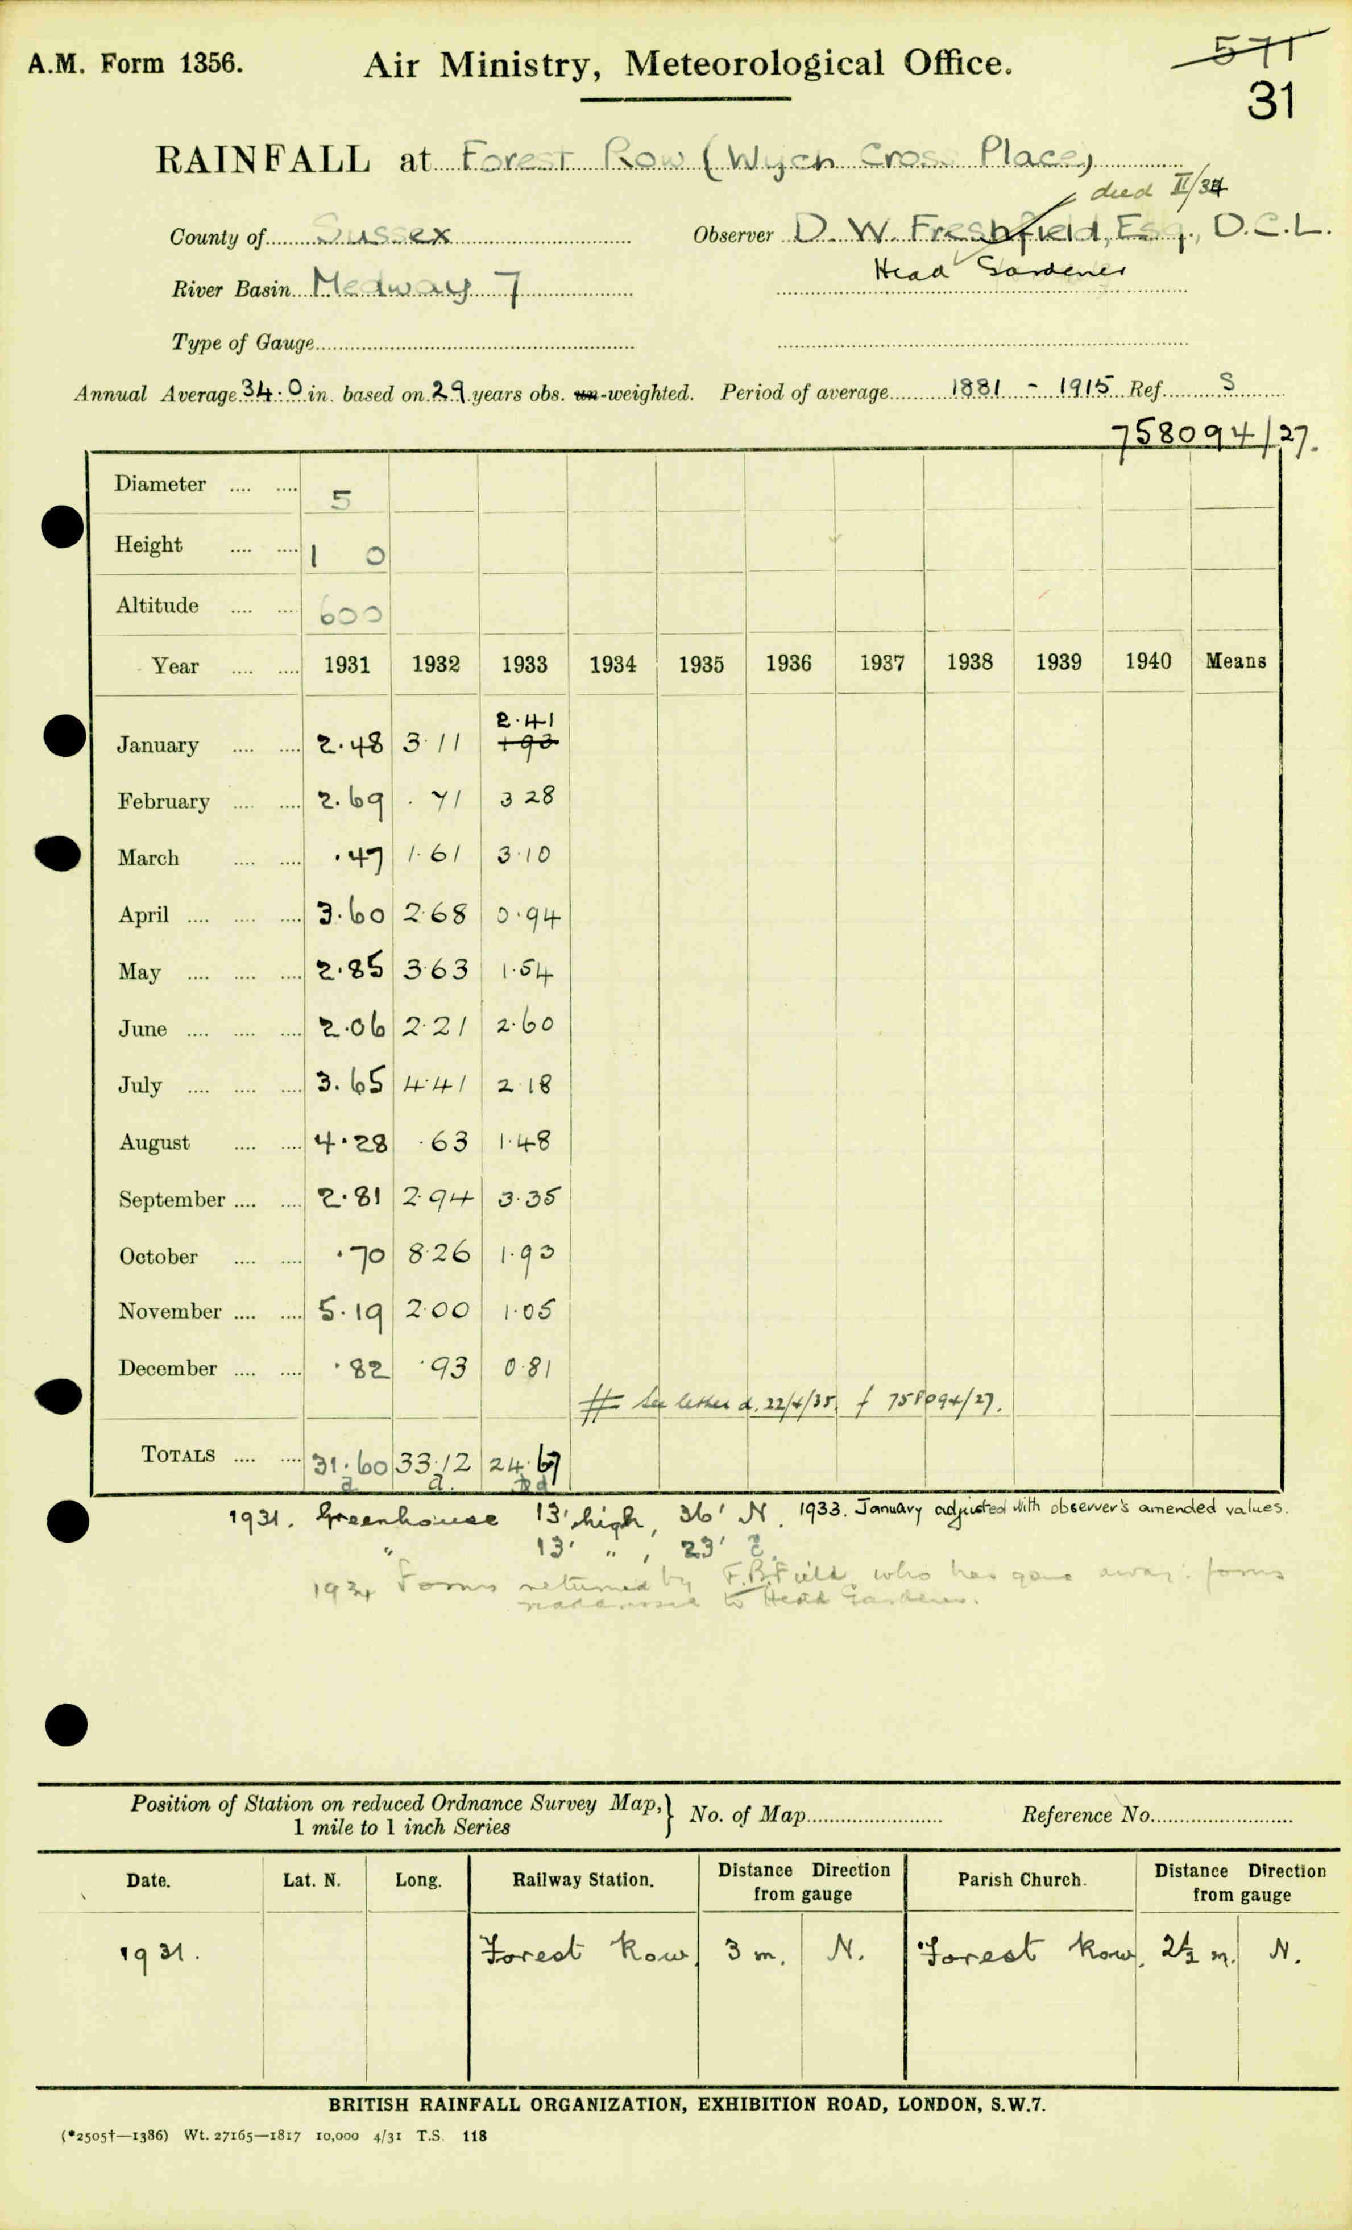 A.M. Form 1356. Air Ministry, Meteorological Office. 571
31
RAINFALL at Forest Row (Wych Cross Place)
died II/34
County of Sussex Observer D. W. Freshfield, Esq., D.C.L.
Head Gardener
River Basin Medway 7
Type of Gauge
Annual Average 34.0 in. based on 29 years obs. un-weighted. Period of average 1881 - 1915 Ref. S
758094/27.
Diameter .... .... 5
Height .... .... 1 0
Altitude .... .... 600
Year .... .... 1931 1932 1933 1934 1935 1936 1937 1938 1939 1940 Means
2.41
January .... .... 2.48 3.11 1.93
February .... .... 2.69 .71 3.28
March .... .... .47 1.61 3.10
April .... .... .... 3.60 2.68 0.94
May .... .... .... 2.85 3.63 1.54
June .... .... .... 2.06 2.21 2.60
July .... .... .... 3.65 4.41 2.18
August .... .... 4.28 .63 1.48
September .... .... 2.81 2.94 3.35
October .... .... .70 8.26 1.93
November .... .... 5.19 2.00 1.05
December .... .... .82 .93 0.81
# See letter d. 22/4/35. f 758094/27.
TOTALS .... .... 31.60 33.12 24.67
a a.
1931. Greenhouse 13' high, 36' N. 1933. January adjusted with observer's amended values.
" 13' " , 23' E.
1934 Forms returned by F.B. Field who has gone away: forms
readdressed to Head Gardener.
Position of Station on reduced Ordnance Survey Map,} No. of Map Reference No.
1 mile to 1 inch Series
Date. Lat. N. Long. Railway Station. Distance Direction from gauge Parish Church. Distance Direction from gauge
1931. Forest Row. 3 m. N. Forest Row. 2½ m. N.
BRITISH RAINFALL ORGANIZATION, EXHIBITION ROAD, LONDON, S.W.7.
(*2505†—1386) Wt. 27165—1817 10,000 4/31 T.S. 118